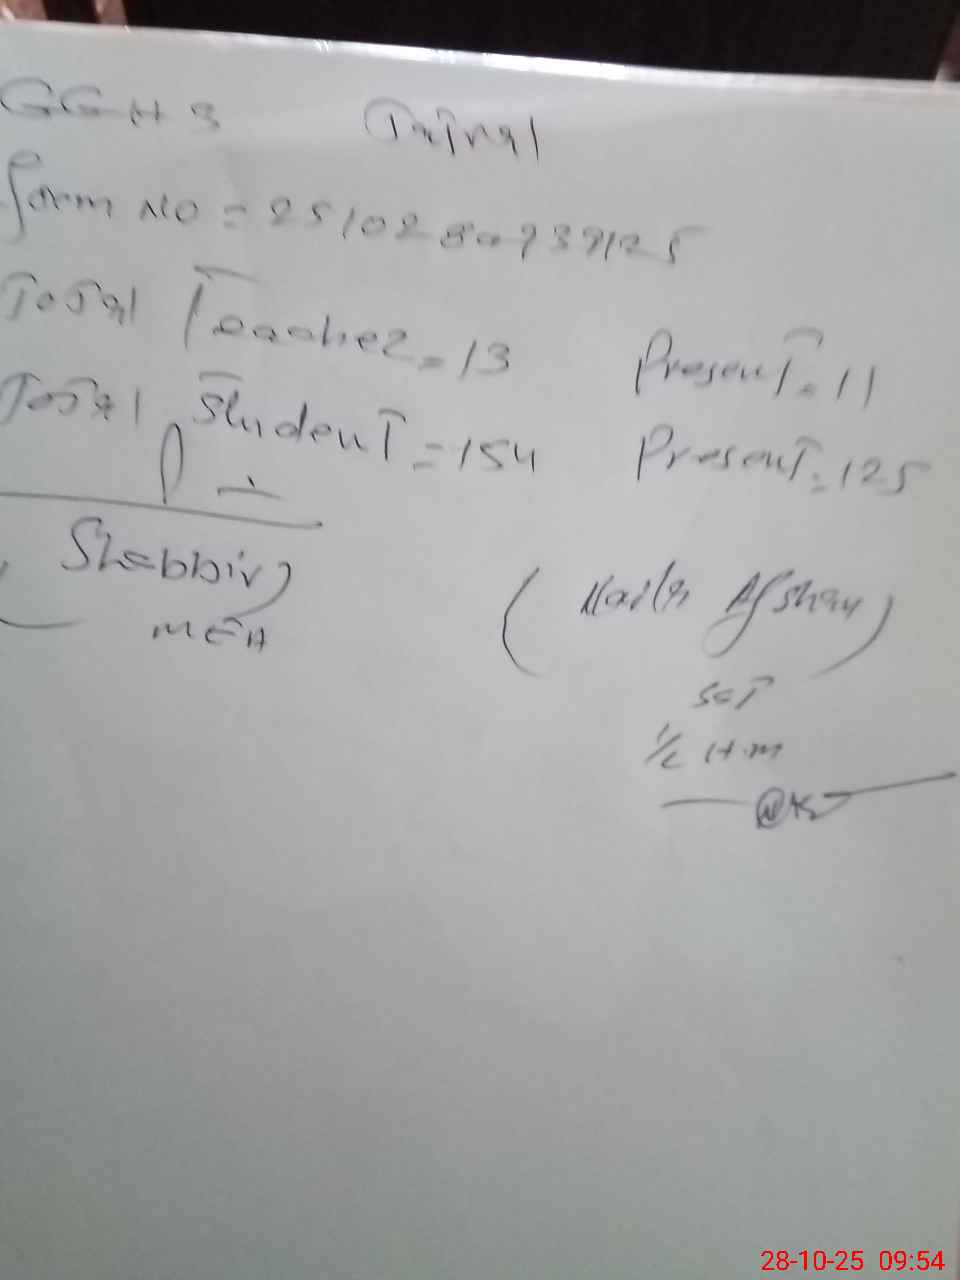 GGHS Tatral
Form NO = 2510280939125
Total Teacher = 13 Present = 11
Total Student = 154 Present = 125
Shabbir)
MEA
(Naila Afshan)
SST
I/C H.m
28-10-25 09:54